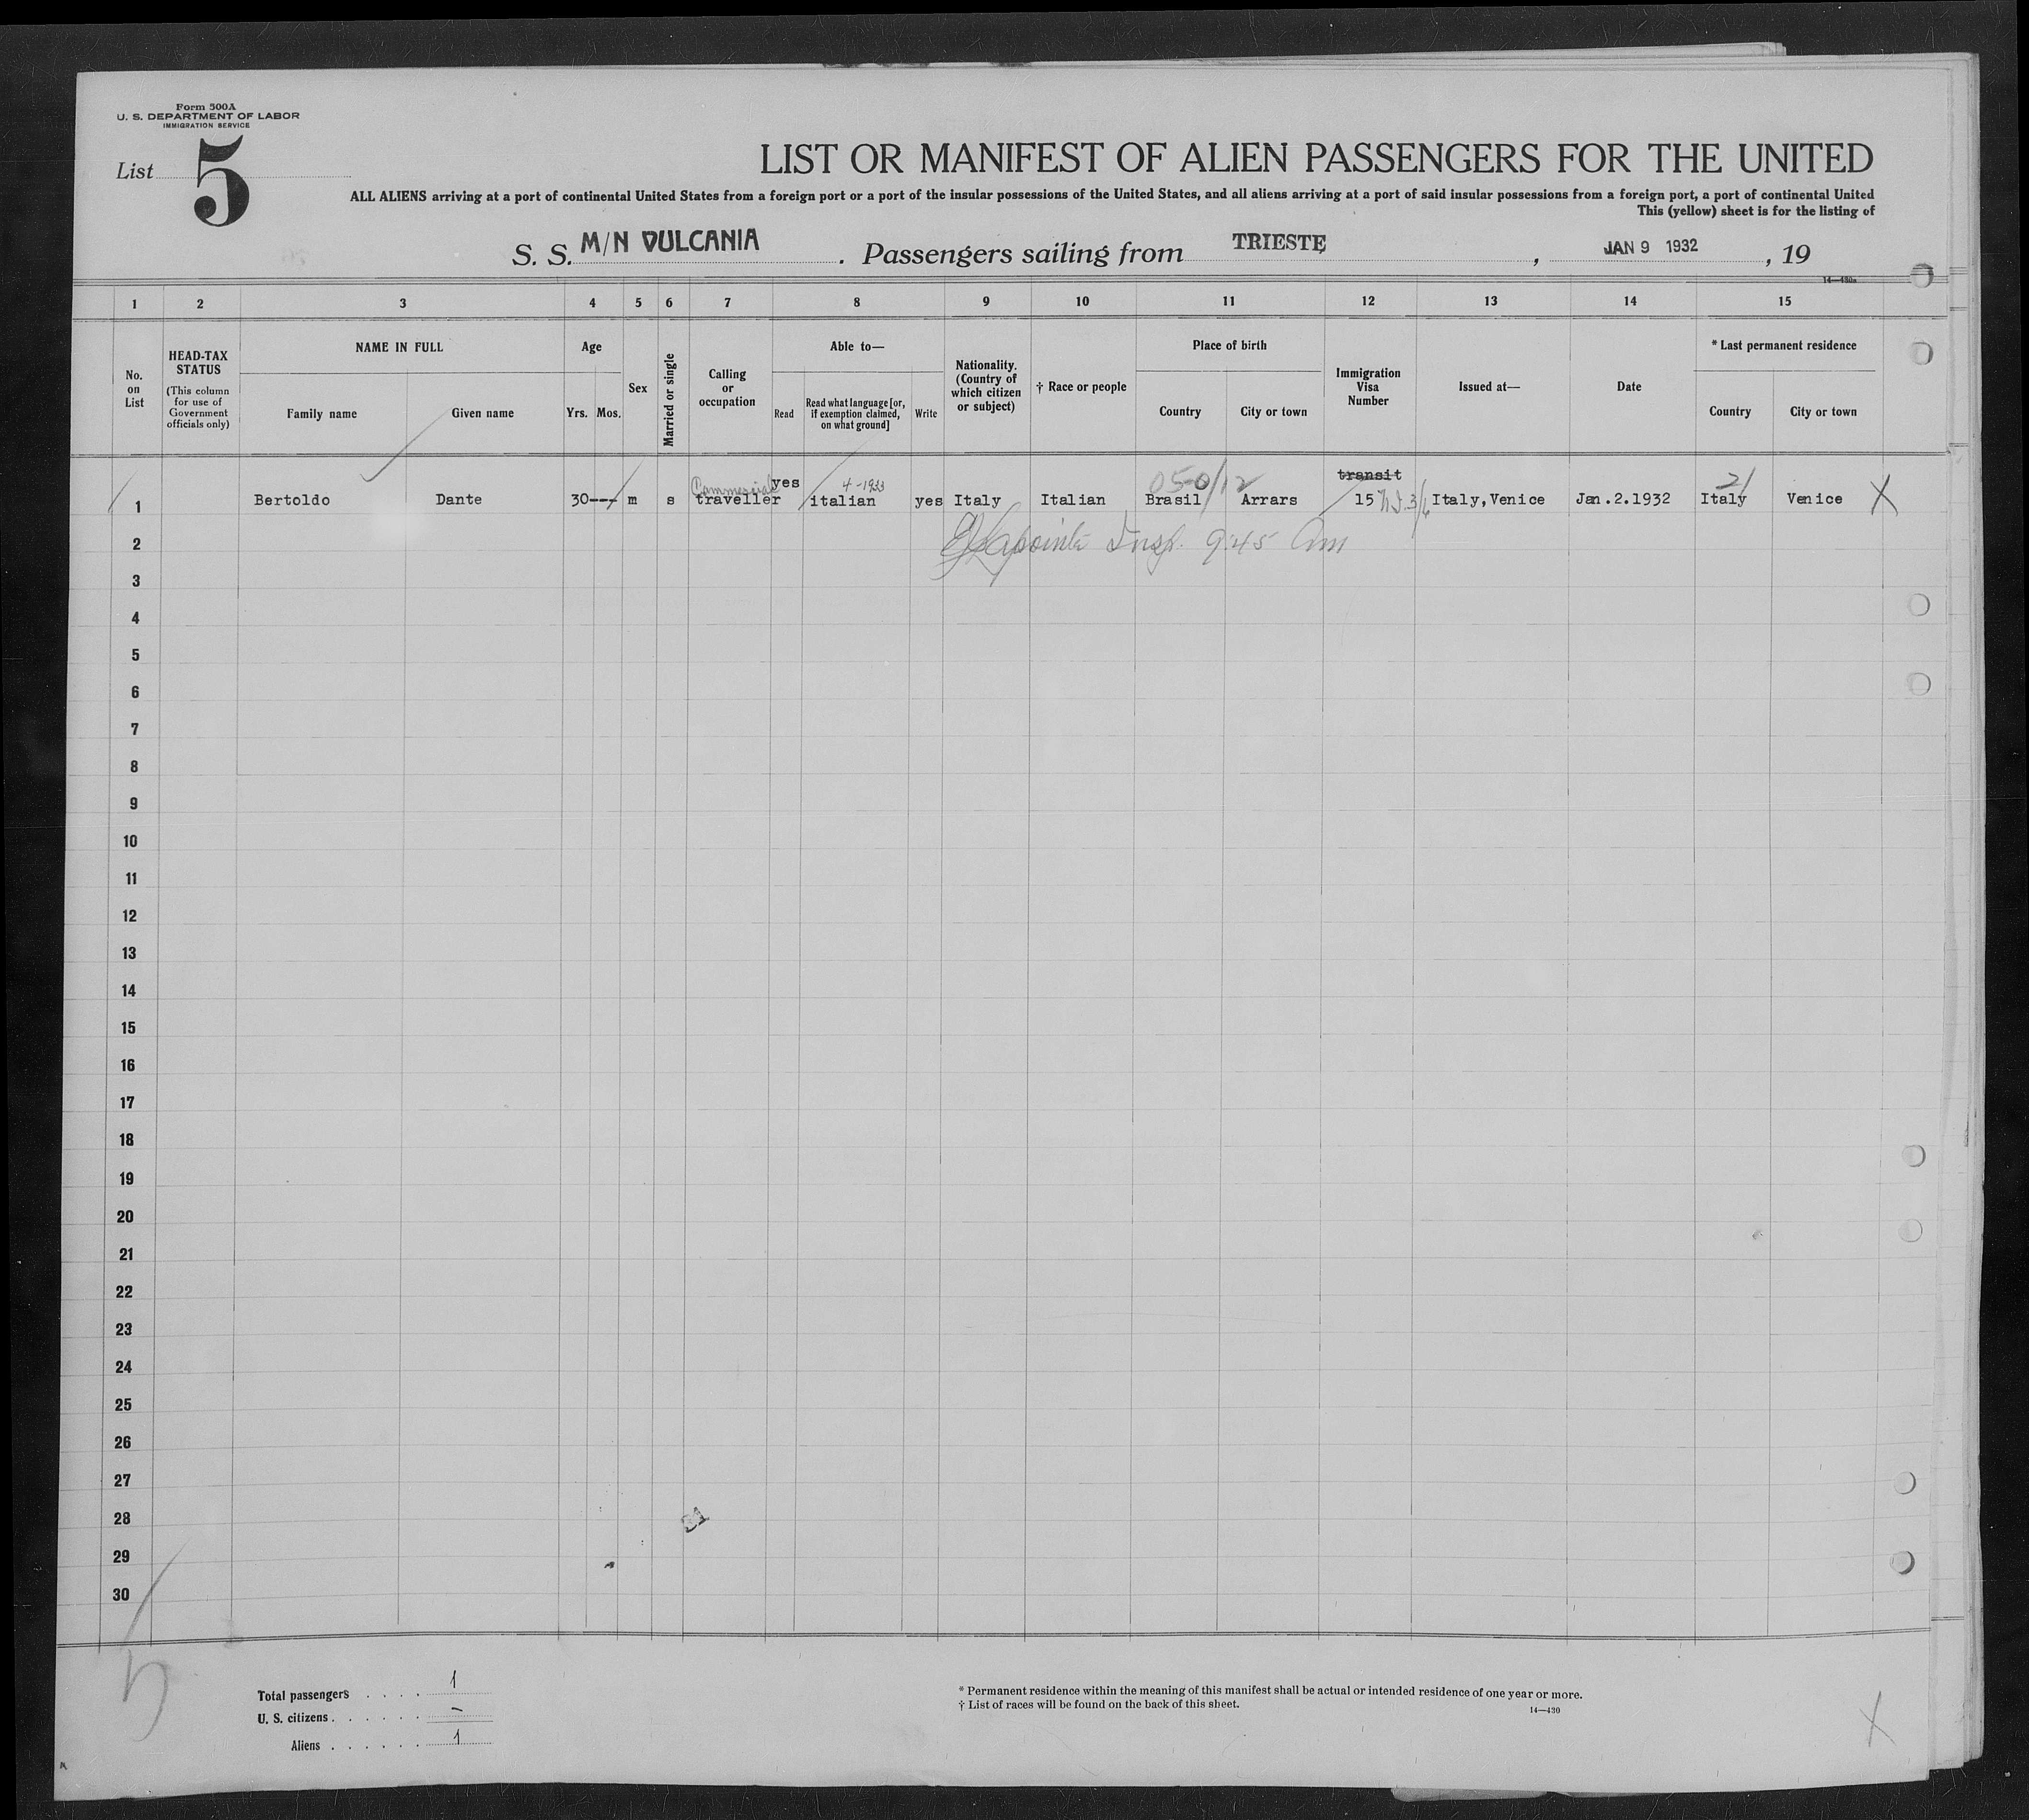 Form 500A
U. S. DEPARTMENT OF LABOR
IMMIGRATION SERVICE
List 5
LIST OR MANIFEST OF ALIEN PASSENGERS FOR THE UNITED
ALL ALIENS arriving at a port of continental United States from a foreign port or a port of the insular possessions of the United States, and all aliens arriving at a port of said insular possessions from a foreign port, a port of continental United
This (yellow) sheet is for the listing of
S. S. M/N VULCANIA . Passengers sailing from TRIESTE, , JAN 9 1932 , 19
14—430a
1 2 3 4 5 6 7 8 9 10 11 12 13 14 15
No. on List
HEAD-TAX STATUS
(This column for use of Government officials only)
NAME IN FULL
Family name Given name
Age
Yrs. Mos.
Sex
Married or single
Calling or occupation
Able to—
Read
Read what language [or, if exemption claimed, on what ground]
Write
Nationality. (Country of which citizen or subject)
† Race or people
Place of birth
Country City or town
Immigration Visa Number
Issued at—
Date
* Last permanent residence
Country City or town
Commercial yes 4-1933 050/12 transit 21
1 Bertoldo Dante 30--- m s traveller italian yes Italy Italian Brasil Arrars 15 3/6 Italy,Venice Jan.2.1932 Italy Venice X
Insp. 9:45 Am
2
3
4
5
6
7
8
9
10
11
12
13
14
15
16
17
18
19
20
21
22
23
24
25
26
27
28
29
30
5
Total passengers . . . . 1
U. S. citizens . . . . . . –
Aliens . . . . . . 1
* Permanent residence within the meaning of this manifest shall be actual or intended residence of one year or more.
† List of races will be found on the back of this sheet.
14—430
X